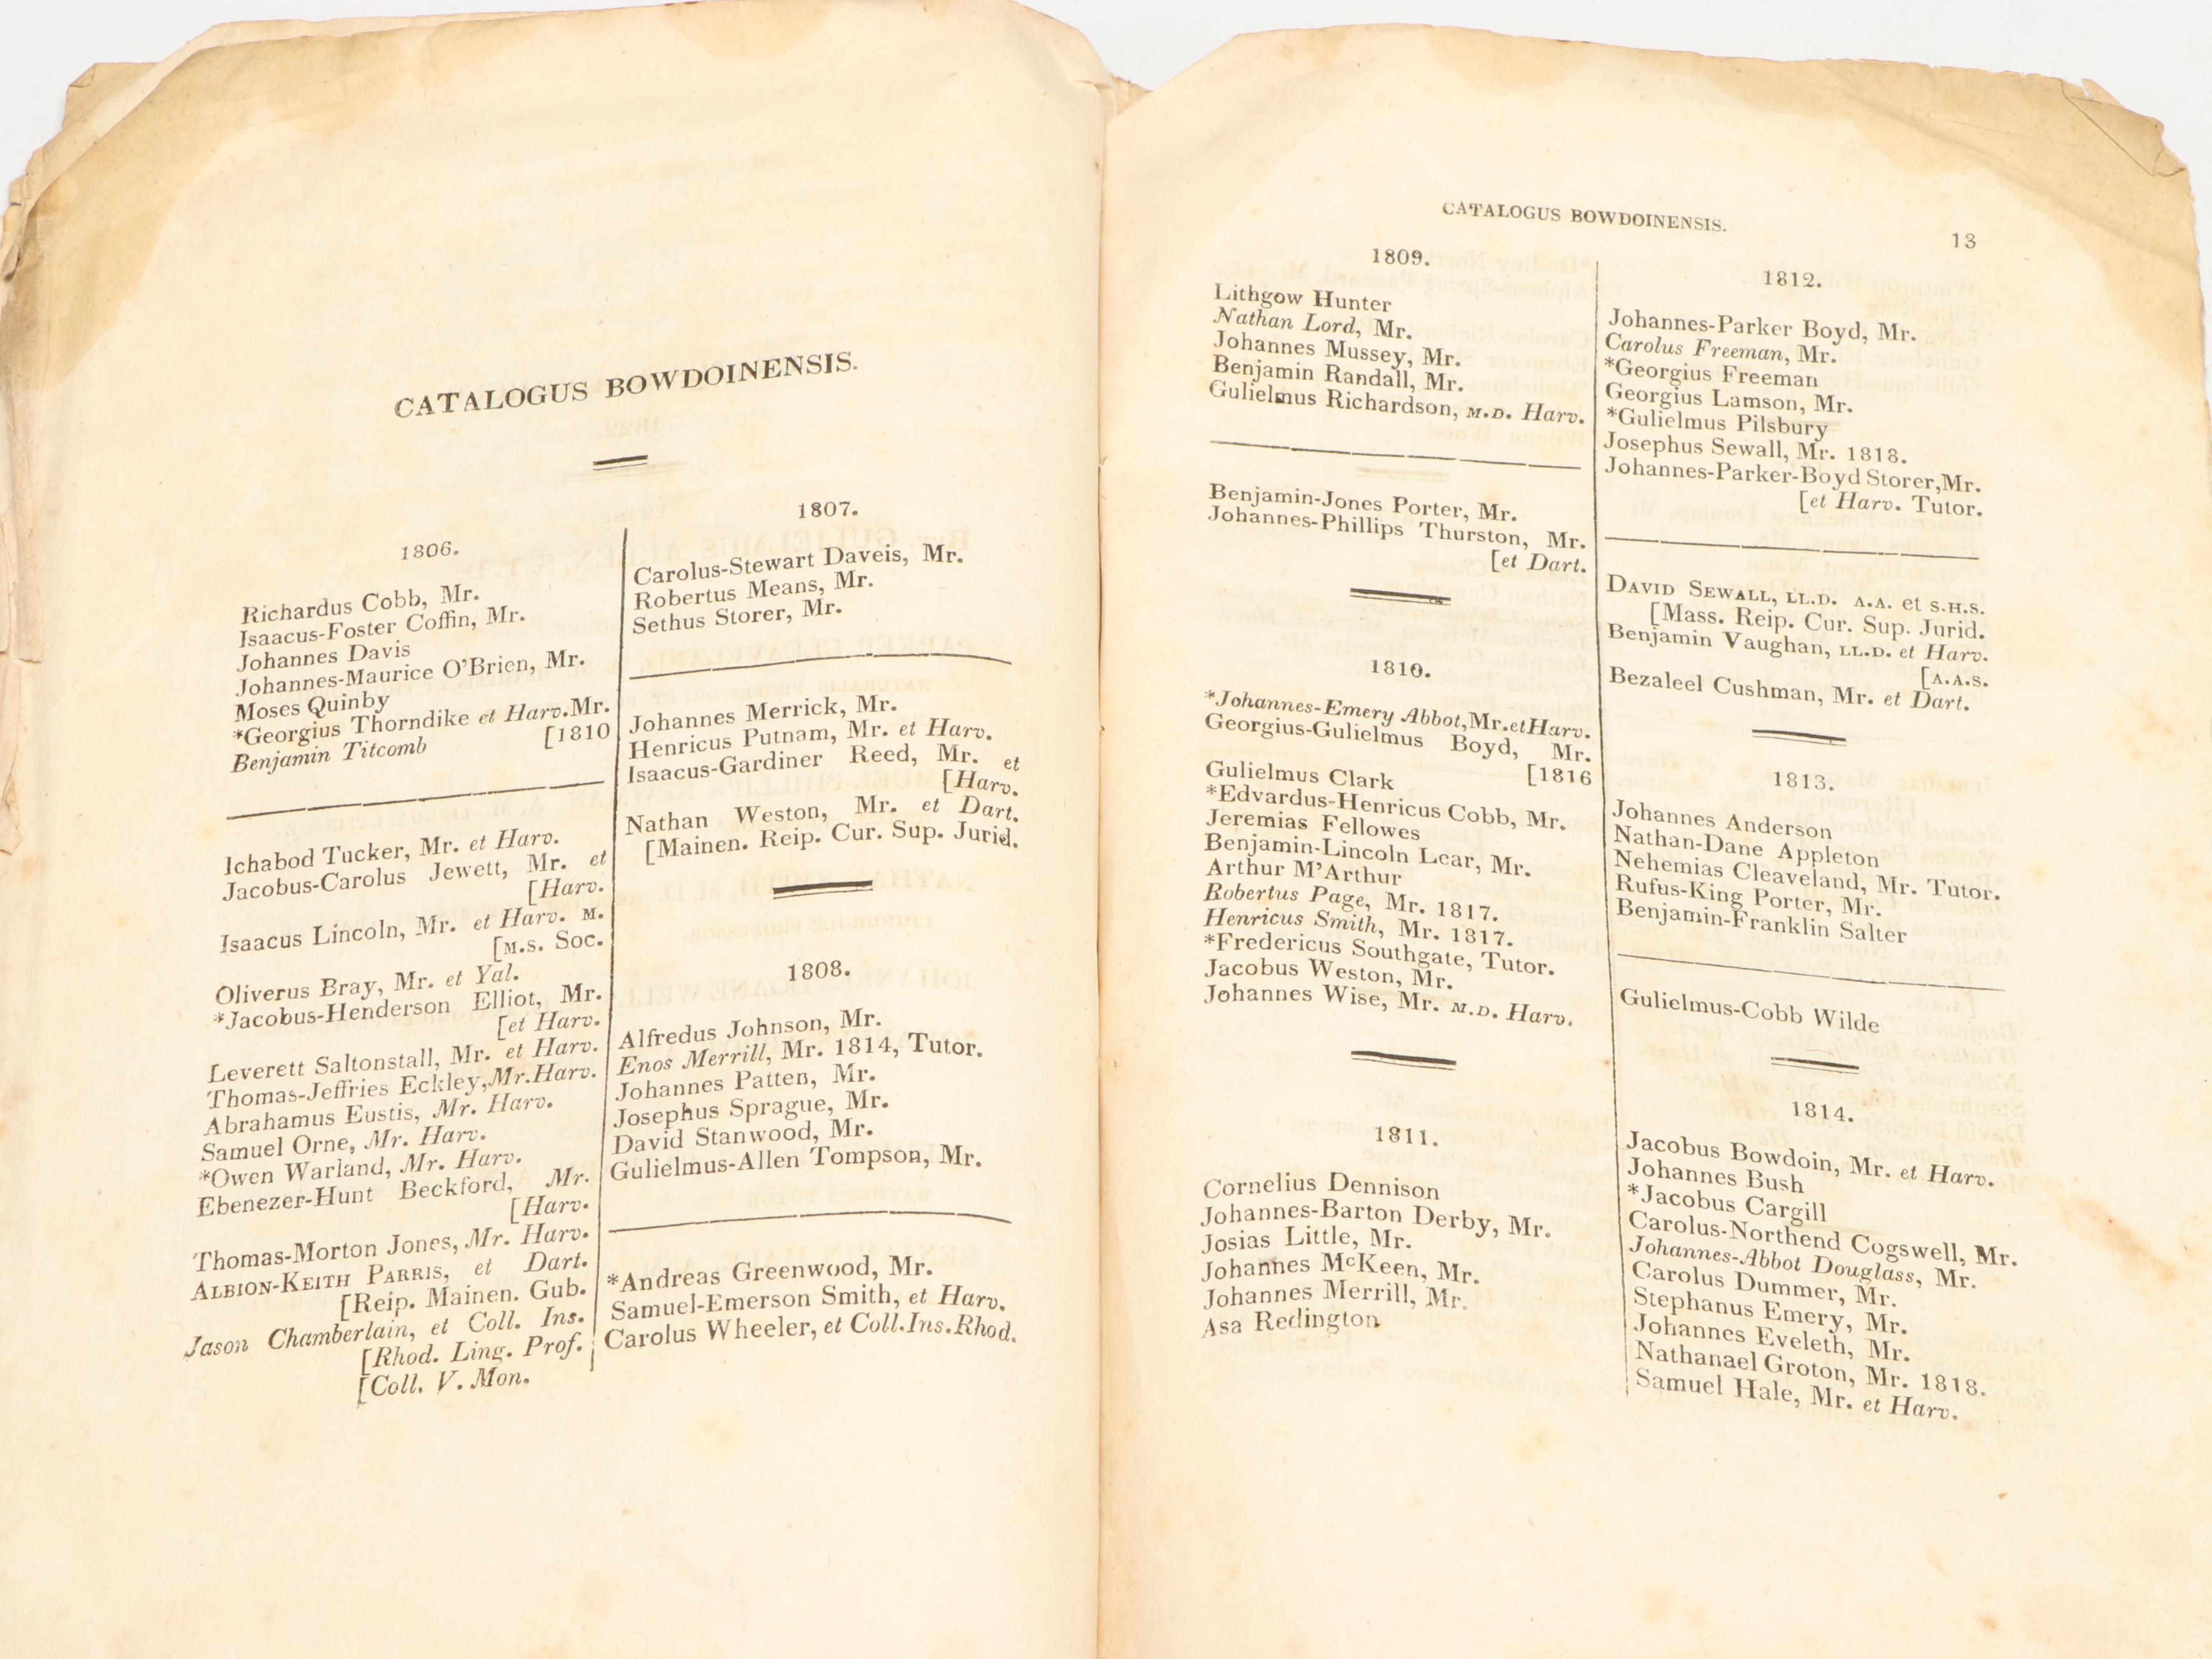 CATALOGUS BOWDOINENSIS.
1806.
Richardus Cobb, Mr.
Isaacus-Foster Coffin, Mr.
Johannes Davis
Johannes-Maurice O'Brien, Mr.
Moses Quinby
*Georgius Thorndike et Harv. Mr.
[1810
Benjamin Titcomb
Ichabod Tucker, Mr. et Harv.
Jacobus-Carolus Jewett, Mr. et
[Harv.
Isaacus Lincoln, Mr. et Harv. M.
[M.S. Soc.
Oliverus Bray, Mr. et Yal.
*Jacobus-Henderson Elliot, Mr.
[et Harv.
Leverett Saltonstall, Mr. et Harv.
Thomas-Jeffries Eckley, Mr. Harv.
Abrahamus Eustis, Mr. Harv.
Samuel Orne, Mr. Harv.
*Owen Warland, Mr. Harv.
Ebenezer-Hunt Beckford, Mr.
[Harv.
Thomas-Morton Jones, Mr. Harv.
ALBION-KEITH PARRIS, et Dart.
[Reip. Mainen. Gub.
Jason Chamberlain, et Coll. Ins.
[Rhod. Ling. Prof.
[Coll. V. Mon.
1807.
Carolus-Stewart Daveis, Mr.
Robertus Means, Mr.
Sethus Storer, Mr.
Johannes Merrick, Mr.
Henricus Putnam, Mr. et Harv.
Isaacus-Gardiner Reed, Mr. et
[Harv.
Nathan Weston, Mr. et Dart.
[Mainen. Reip. Cur. Sup. Jurid.
1808.
Alfredus Johnson, Mr.
Enos Merrill, Mr. 1814, Tutor.
Johannes Patten, Mr.
Josephus Sprague, Mr.
David Stanwood, Mr.
Gulielmus-Allen Tompson, Mr.
*Andreas Greenwood, Mr.
Samuel-Emerson Smith, et Harv.
Carolus Wheeler, et Coll. Ins. Rhod.
CATALOGUS BOWDOINENSIS.
13
1809.
Lithgow Hunter
Nathan Lord, Mr.
Johannes Mussey, Mr.
Benjamin Randall, Mr.
Gulielmus Richardson, M.D. Harv.
Benjamin-Jones Porter, Mr.
Johannes-Phillips Thurston, Mr.
[et Dart.
1810.
*Johannes-Emery Abbot, Mr. et Harv.
Georgius-Gulielmus Boyd, Mr.
[1816
Gulielmus Clark
*Edvardus-Henricus Cobb, Mr.
Jeremias Fellowes
Benjamin-Lincoln Lear, Mr.
Arthur M'Arthur
Robertus Page, Mr. 1817.
Henricus Smith, Mr. 1817.
*Fredericus Southgate, Tutor.
Jacobus Weston, Mr.
Johannes Wise, Mr. M.D. Harv.
1811.
Cornelius Dennison
Johannes-Barton Derby, Mr.
Josias Little, Mr.
Johannes McKeen, Mr.
Johannes Merrill, Mr.
Asa Redington
1812.
Johannes-Parker Boyd, Mr.
Carolus Freeman, Mr.
*Georgius Freeman
Georgius Lamson, Mr.
*Gulielmus Pilsbury
Josephus Sewall, Mr. 1818.
Johannes-Parker-Boyd Storer, Mr.
[et Harv. Tutor.
DAVID SEWALL, LL.D. A.A. et S.H.S.
[Mass. Reip. Cur. Sup. Jurid.
Benjamin Vaughan, LL.D. et Harv.
[A.A.S.
Bezaleel Cushman, Mr. et Dart.
1813.
Johannes Anderson
Nathan-Dane Appleton
Nehemias Cleaveland, Mr. Tutor.
Rufus-King Porter, Mr.
Benjamin-Franklin Salter
Gulielmus-Cobb Wilde
1814.
Jacobus Bowdoin, Mr. et Harv.
Johannes Bush
*Jacobus Cargill
Carolus-Northend Cogswell, Mr.
Johannes-Abbot Douglass, Mr.
Carolus Dummer, Mr.
Stephanus Emery, Mr.
Johannes Eveleth, Mr.
Nathanael Groton, Mr. 1818.
Samuel Hale, Mr. et Harv.